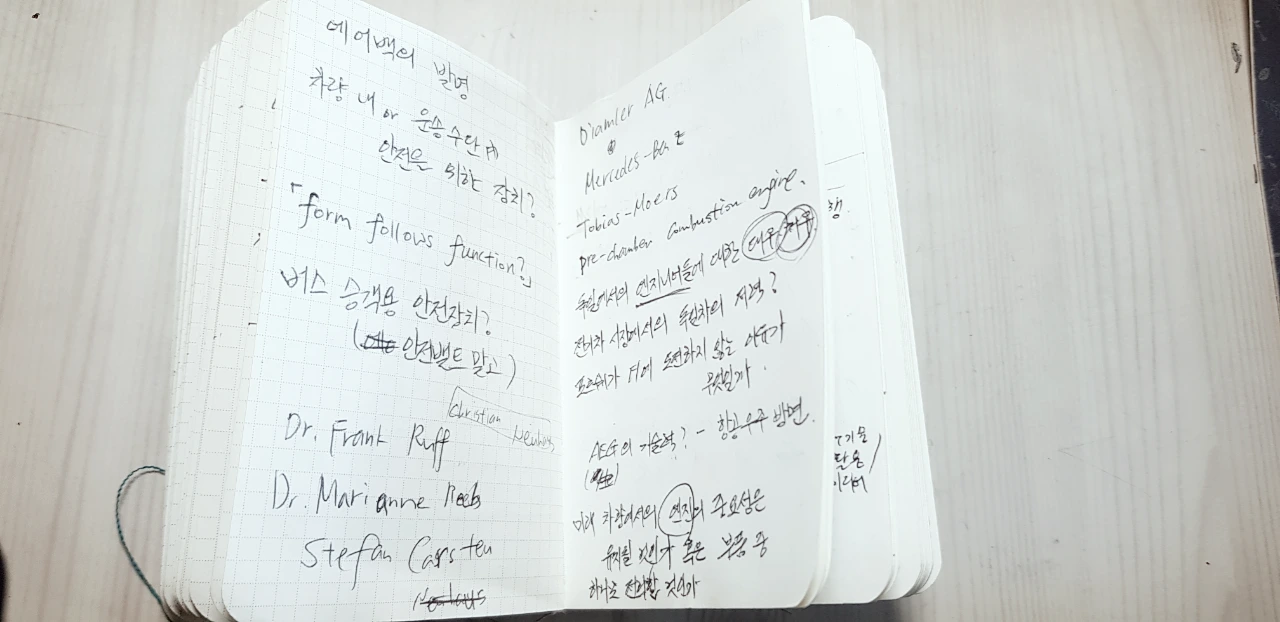 에어백의 발명
차량 내 or 운송수단에
안전을 위한 장치?
「form follows function?」
버스 승객용 안전장치?
( 안전벨트 말고)
Christian
Dr. Frank Ruff
Dr. Marianne Reeb
Stefan Carsten
Daimler AG
Mercedes-Benz
Tobias-Moers
pre-chamber combustion engine.
독일에서의 엔지니어들에 대한 대우, 처우
전기차 시장에서의 독일차의 저력?
포르쉐가 F1에 도전하지 않는 이유가
무엇일까.
AEG의 기술력? - 항공우주 방면.
미래 차량에서의 엔진의 중요성은
유지될 것인가 혹은 부품 중
하나로 전락할 것인가
행.